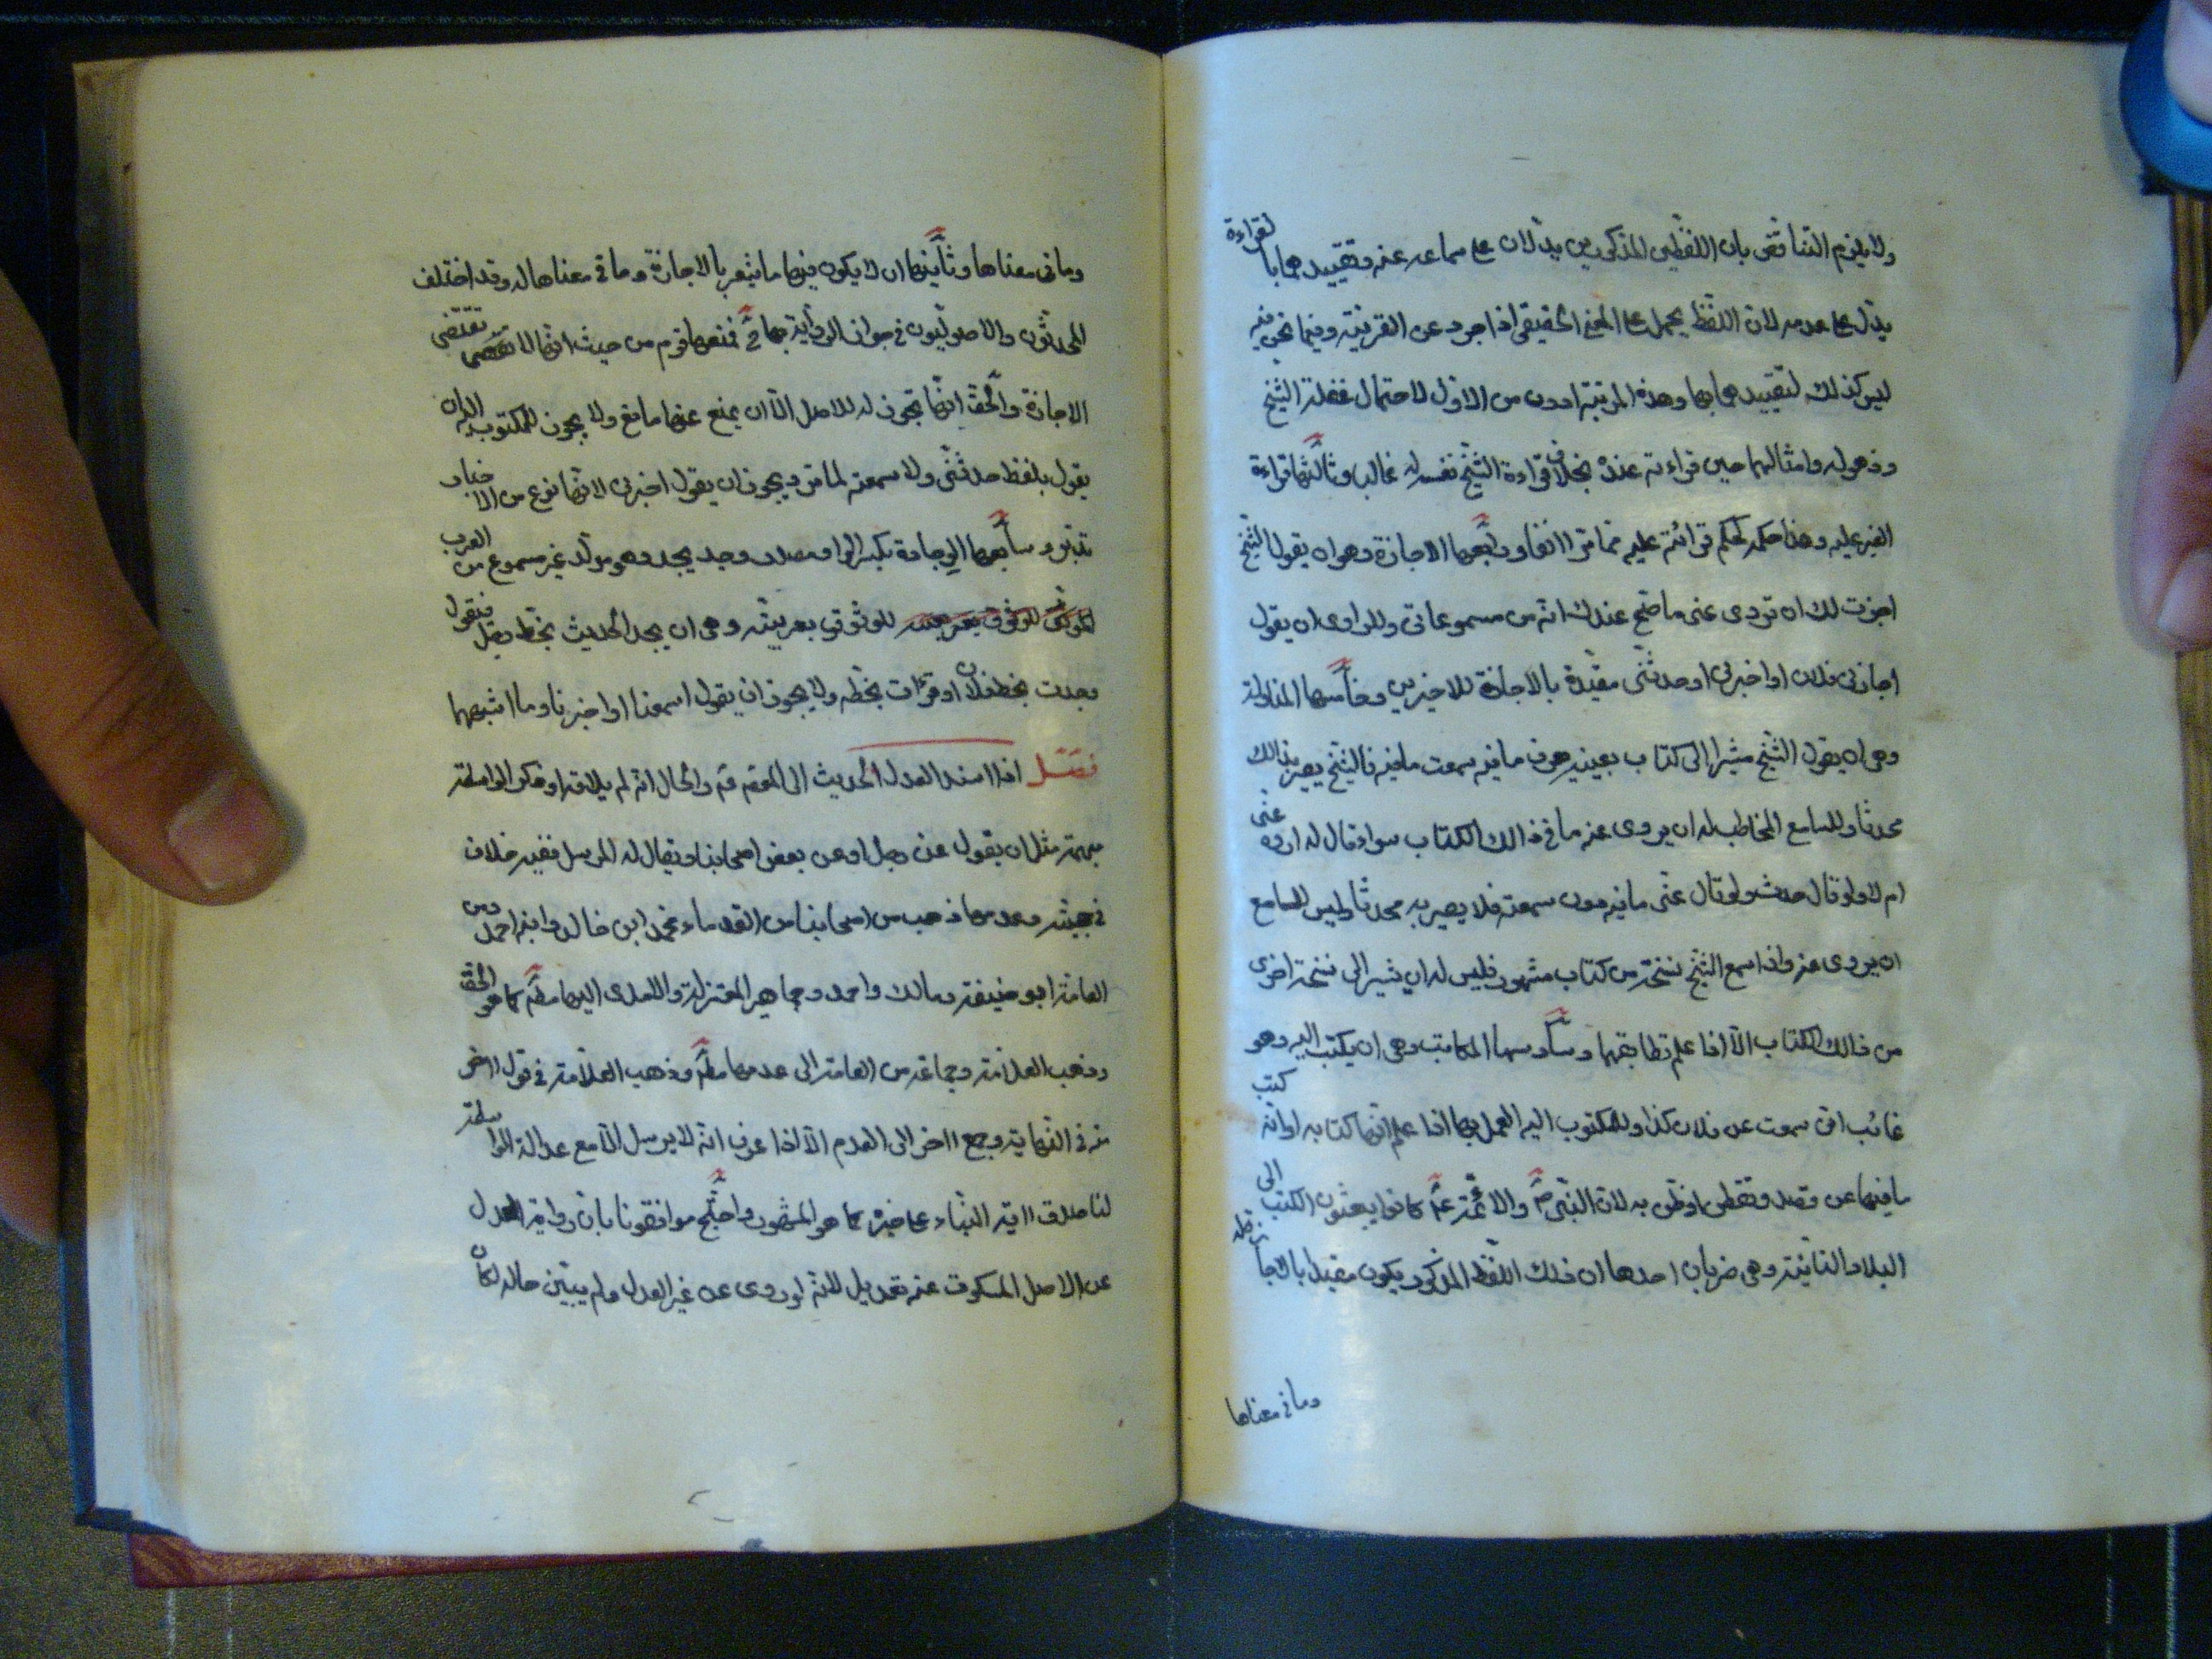 ولا يلزم التناقض بان اللفظين المذكورين يدلان على سماعه عنه وتقييدهما بالقراءة
يدل على عدمه لان اللفظ يحمل على المعنى الحقيقى اذا جرد عن القرينة وفيما نحن فيه
ليس كذلك لتقييدهما بها وهذه المرتبة ادون من الاول لاحتمال غفلة الشيخ
وذهوله وامثالهما حين قراءته عنده بخلاف قراءة الشيخ نفسه له غالبا وثالثها قراءة
الغير عليه وهذا حكمه كحكم قرائته عليه مما مر انفا ورابعها الاجازة وهو ان يقول الشيخ
اجزت لك ان تروى عنى ما صح عندك انه من مسموعاتى وللراوى ان يقول
اجازنى فلان او اخبرنى او حدثنى مقيدة بالاجازة للاخيرين وخامسها المناولة
وهى ان يقول الشيخ مشيرا الى كتاب بعينه يعرف ما فيه سمعت ما فيه فالشيخ يصير بذالك
محدثا وللسامع المخاطب له ان يروى عنه ما فى ذالك الكتاب سواء قال له اروه عنى
ام لا ولو قال حدث ولو قال عنى ما فيه دون سمعته فلا يصير به محدثا وليس للسامع
ان يروى عنه واذا سمع الشيخ نسخة من كتاب مشهور فليس له ان يشير الى نسخة اخرى
من ذالك الكتاب الا اذا علم تطابقهما وسادسها المكاتبة وهى ان يكتب اليه وهو
غائب انى سمعت عن فلان كذا وللمكتوب اليه العمل بها اذا علم انها كتابه او انه كتب
ما فيها عن قصد وتفطن او ظن به لان النبى ص والائمة ع كانوا يبعثون الكتب الى
البلاد النائية وهى ضربان احدها ان ذلك اللفظ المذكور يكون مقيدا بالاجازة
وما فى معناها
وما فى معناها وثانيهما ان لا يكون فيها ما يشعر بالاجازة وما فى معناها له وقد اختلف
المحدثون والاصوليون فى جواز الرواية بها فمنعها قوم من حيث انها لا تقتضى
الاجازة والحق انها تجوز له للاصل الا ان يمنع عنها مانع ولا يجوز للمكتوب اليه ان
يقول بلفظ حدثنى ولا سمعته لما مر ويجوز ان يقول اخبرنى لانها نوع من الاخبار
تدبر وسابعها الوجادة بكسر الواو مصدر وجد يجد وهو مولد غير مسموع من العرب
للوثوق بعربيته وهى ان يجد الحديث بخط رجل فيقول
وجدت بخط فلان او قرات بخطه ولا يجوز ان يقول اسمعنا او اخبرنا وما اشبههما
فصل اذا اسند العدل الحديث الى المعصوم ع والحال انه لم يلاقه او ذكر الواسطة
مبهمة مثل ان يقول عن رجل او عن بعض اصحابنا ويقال له المرسل ففيه خلاف
فى حجيته وعدمها ذهب من اصحابنا من القدماء محمد ابن خالد وابنه احمد ومن
العامة ابو حنيفة ومالك واحمد وجماهير المعتزلة والامدى اليها مط كما هو الحق
وذهب العلامة وجماعة من العامة الى عدمها مط وذهب العلامة فى قول اخر
منه فى النهاية وجمع اخر الى العدم الا اذا عرف انه لا يرسل الا مع عدالة الواسطة
لنا صدق اية النباء على خبره كما هو المشهور واحتج موافقونا بان رواية العدل
عن الاصل المسكوت عنه تعديل لانه لو روى عن غير العدل ولم يبين حاله لكان